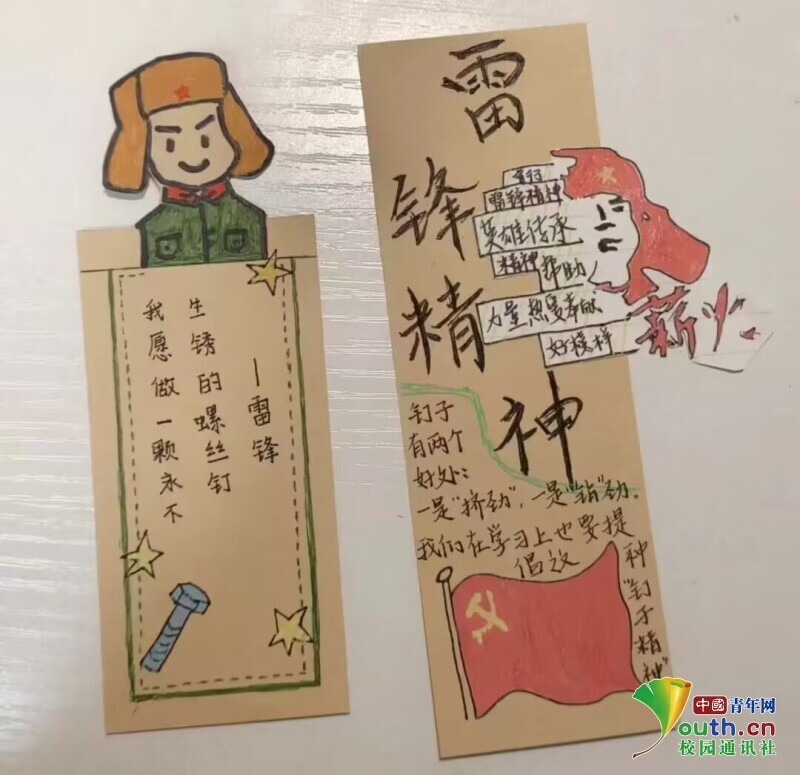 我愿做一颗永不
生锈的螺丝钉
—雷锋
雷锋精神
雷锋精神
英雄传承
精神 帮助
力量热爱奉献
好模样
薪火
钉子
有两个
好处:
一是"挤劲",一是"钻"劲。
我们在学习上也要提
倡这
种"钉子精神"
中國青年网
Youth.cn
校园通讯社